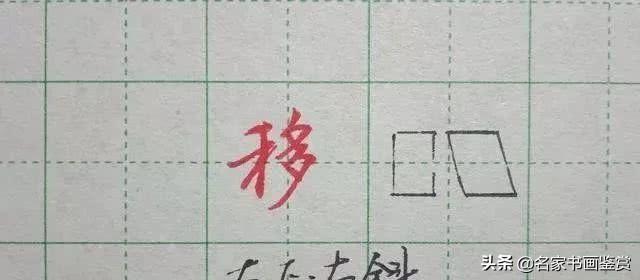 移
头条 @名家书画鉴赏